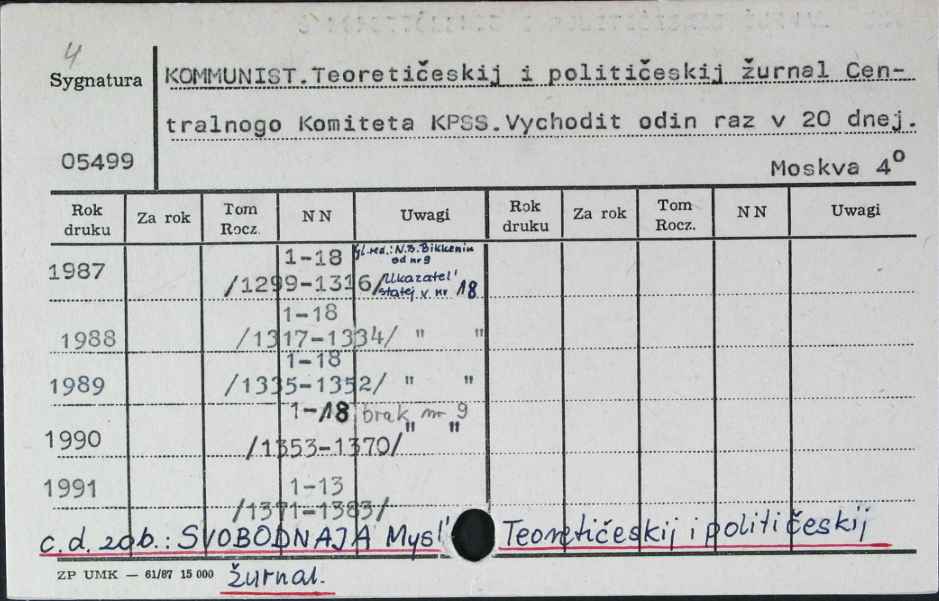 4
Sygnatura
KOMMUNIST.Teoretičeskij i političeskij žurnal Cen-
tralnogo Komiteta KPSS.Vychodit odin raz v 20 dnej.
05499
Moskva 4°
Rok druku Za rok Tom Rocz. NN Uwagi Rok druku Za rok Tom Rocz. NN Uwagi
1987 1-18 gl. red.: N.B. Bikkenin
od nr 9
/1299-1316/ Ukazatel'
statej v nr 18
1-18
1988 /1317-1334/ " "
1-18
1989 /1335-1352/ " "
1-18 brak nr 9
1990 /1353-1370/ " "
1991 1-13
/1371-1383/
c.d. zob.: SVOBODNAJA Mysl' Teoretičeskij i političeskij
ZP UMK — 61/87 15 000 žurnal.